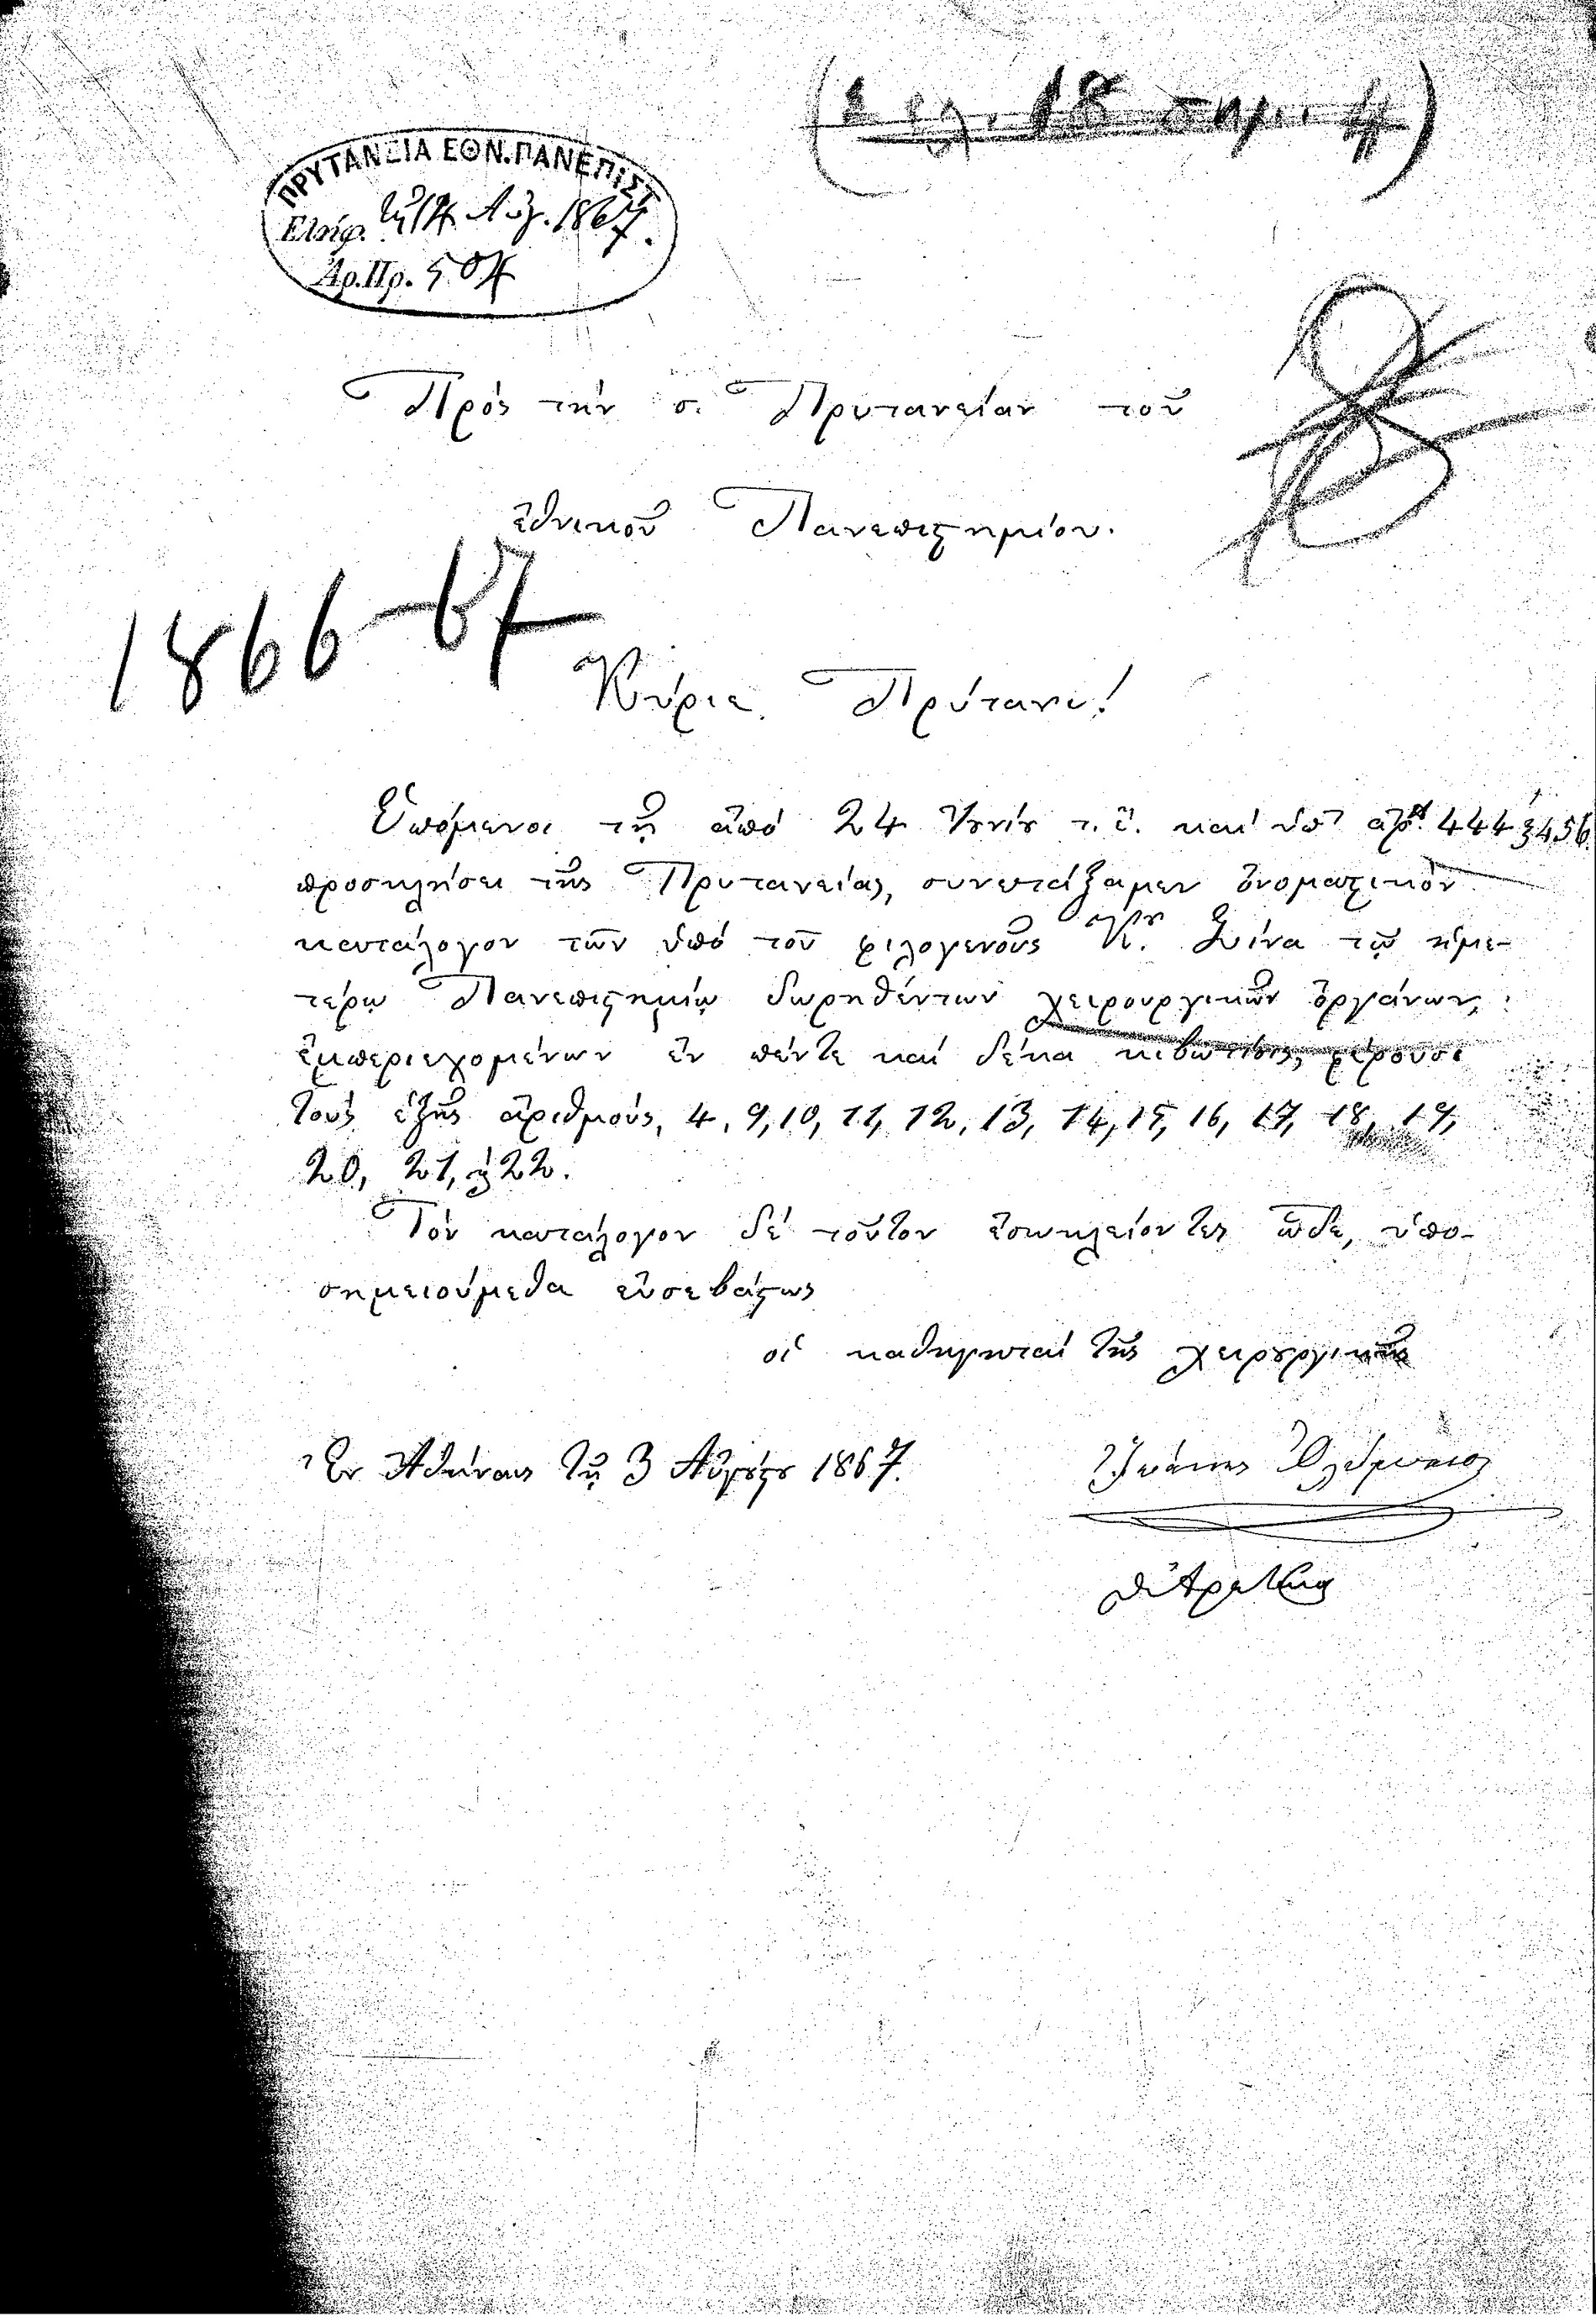 ΠΡΥΤΑΝΕΙΑ ΕΘΝ. ΠΑΝΕΠΙΣΤ
Εἰσήχ. τῇ 14 Αὐγ. 1867.
Ἀρ. Πρ. 504
Πρὸς τὴν σ. Πρυτανείαν τοῦ
ἐθνικοῦ Πανεπιστημίου.
1866-67
Κύριε Πρύτανι!
Ἑπόμενοι τῇ ἀπὸ 24 Ἰουνίου τ. ἔ. καὶ ὑπ' ἀρ. 444 καὶ 456
προσκλήσει τῆς Πρυτανείας, συνετάξαμεν ὀνομαστικὸν
κατάλογον τῶν ὑπὸ τοῦ φιλογενοῦς Κ. Σίνα τῷ ἡμε-
τέρῳ Πανεπιστημίῳ δωρηθέντων χειρουργικῶν ὀργάνων,
ἐμπεριεχομένων ἐν πέντε καὶ δέκα κιβωτίοις, φέρουσι
τοὺς ἑξῆς ἀριθμούς, 4, 9, 10, 11, 12, 13, 14, 15, 16, 17, 18, 19,
20, 21, καὶ 22.
Τὸν κατάλογον δὲ τοῦτον ἐσωκλείοντες ὧδε, ὑπο-
σημειούμεθα εὐσεβάστως
οἱ καθηγηταὶ τῆς χειρουργικῆς
Ἐν Ἀθήναις τῇ 3 Αὐγούστου 1867.
Ἰωάννης Ὀλύμπιος
Θ. Ἀρεταῖος